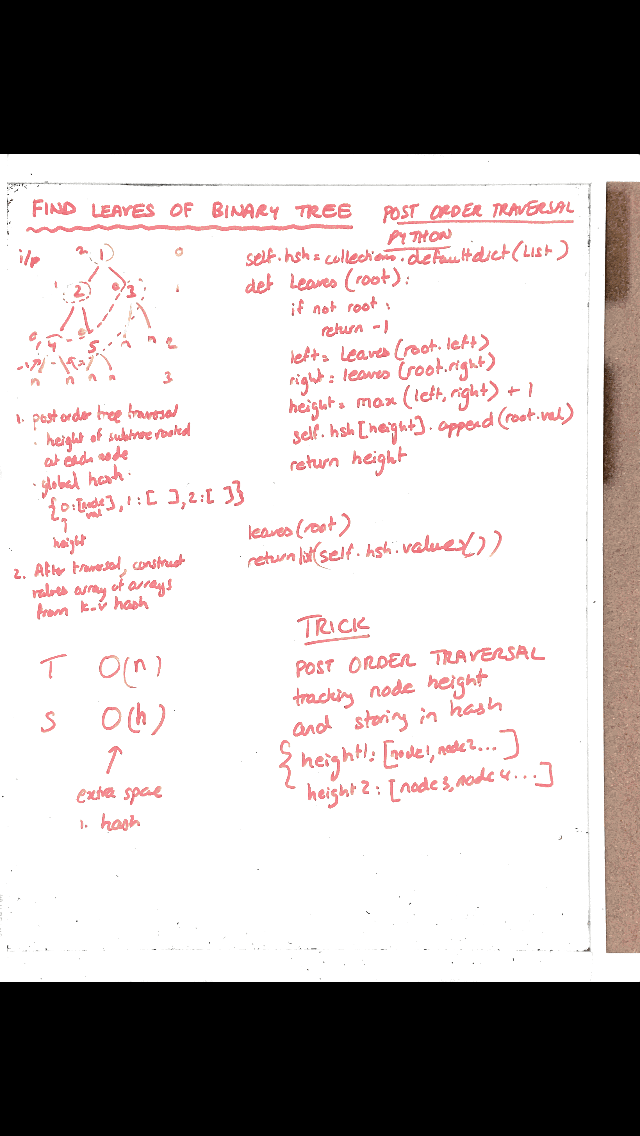 FIND LEAVES OF BINARY TREE
POST ORDER TRAVERSAL
PYTHON
i/p
2 1 0
1 2 0 3 1
0 4 0 5 n n 2
-1 -1
n n n n 3
1. post order tree traversal
. height of subtree rooted
at each node
. global hash.
{0:[node val], 1:[ ], 2:[ ]}
↑
height
2. After traversal, construct
values array of arrays
from k-v hash
T O(n)
S O(h)
↑
extra space
1. hash
self.hsh = collections.defaultdict(List)
def Leaves(root):
if not root:
return -1
left = Leaves(root.left)
right = leaves(root.right)
height = max(left, right) + 1
self.hsh[height].append(root.val)
return height
leaves(root)
return list(self.hsh.values())
TRICK
POST ORDER TRAVERSAL
tracking node height
and storing in hash
{ height1: [node1, node2...]
height2: [node3, node4...]